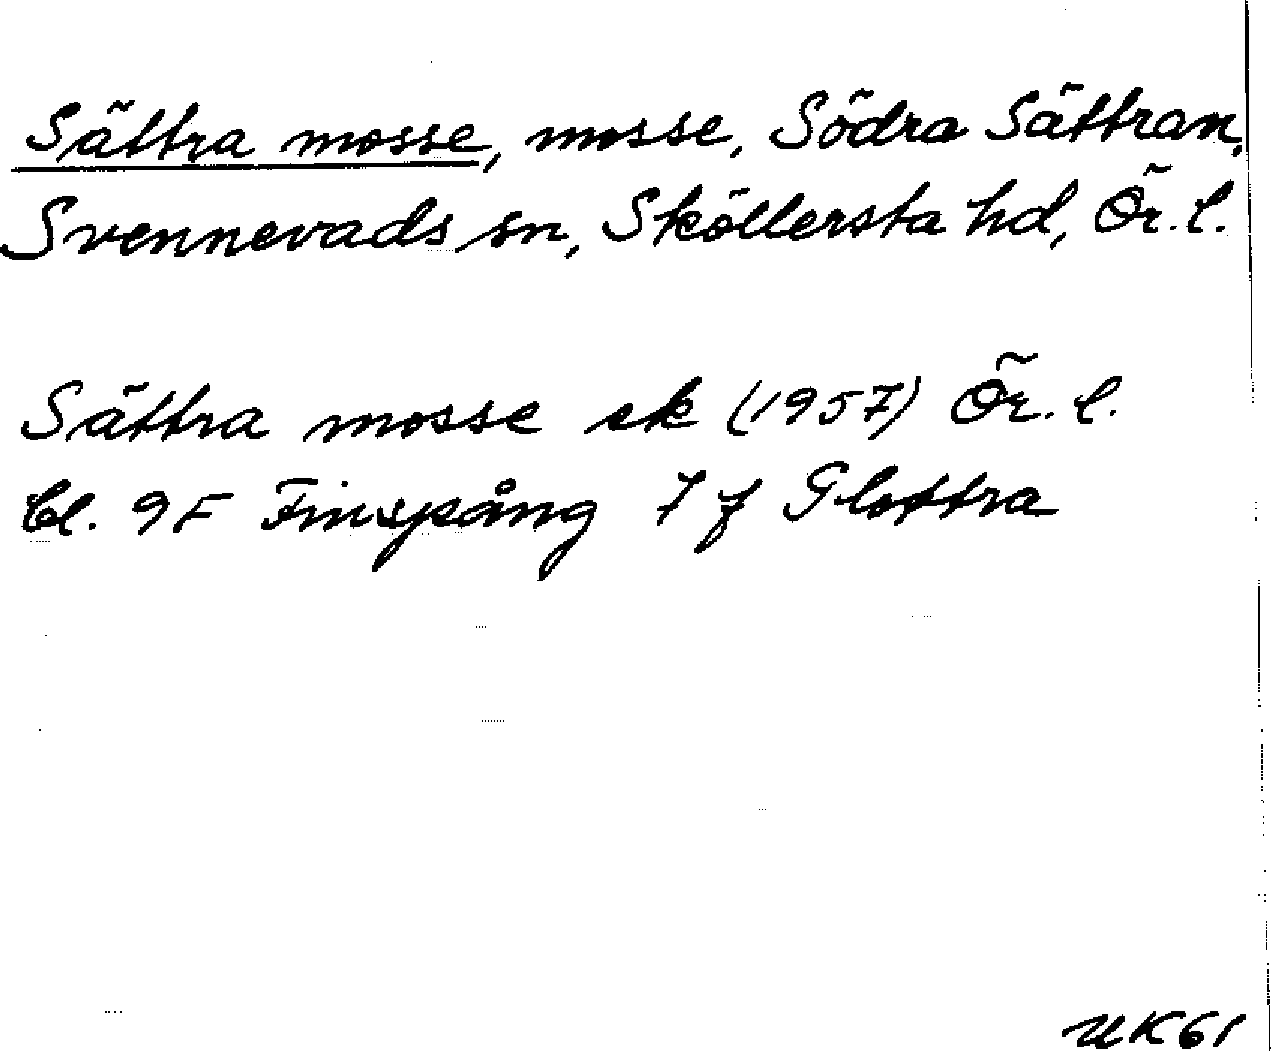 Sättra mosse, mosse, Södra Sättran,
Svennevads sn, Sköllersta hd, Ör. l.
Sättra mosse ek (1957) Ör. l.
bl. 9F Finspång 7 f Glottra
UK61